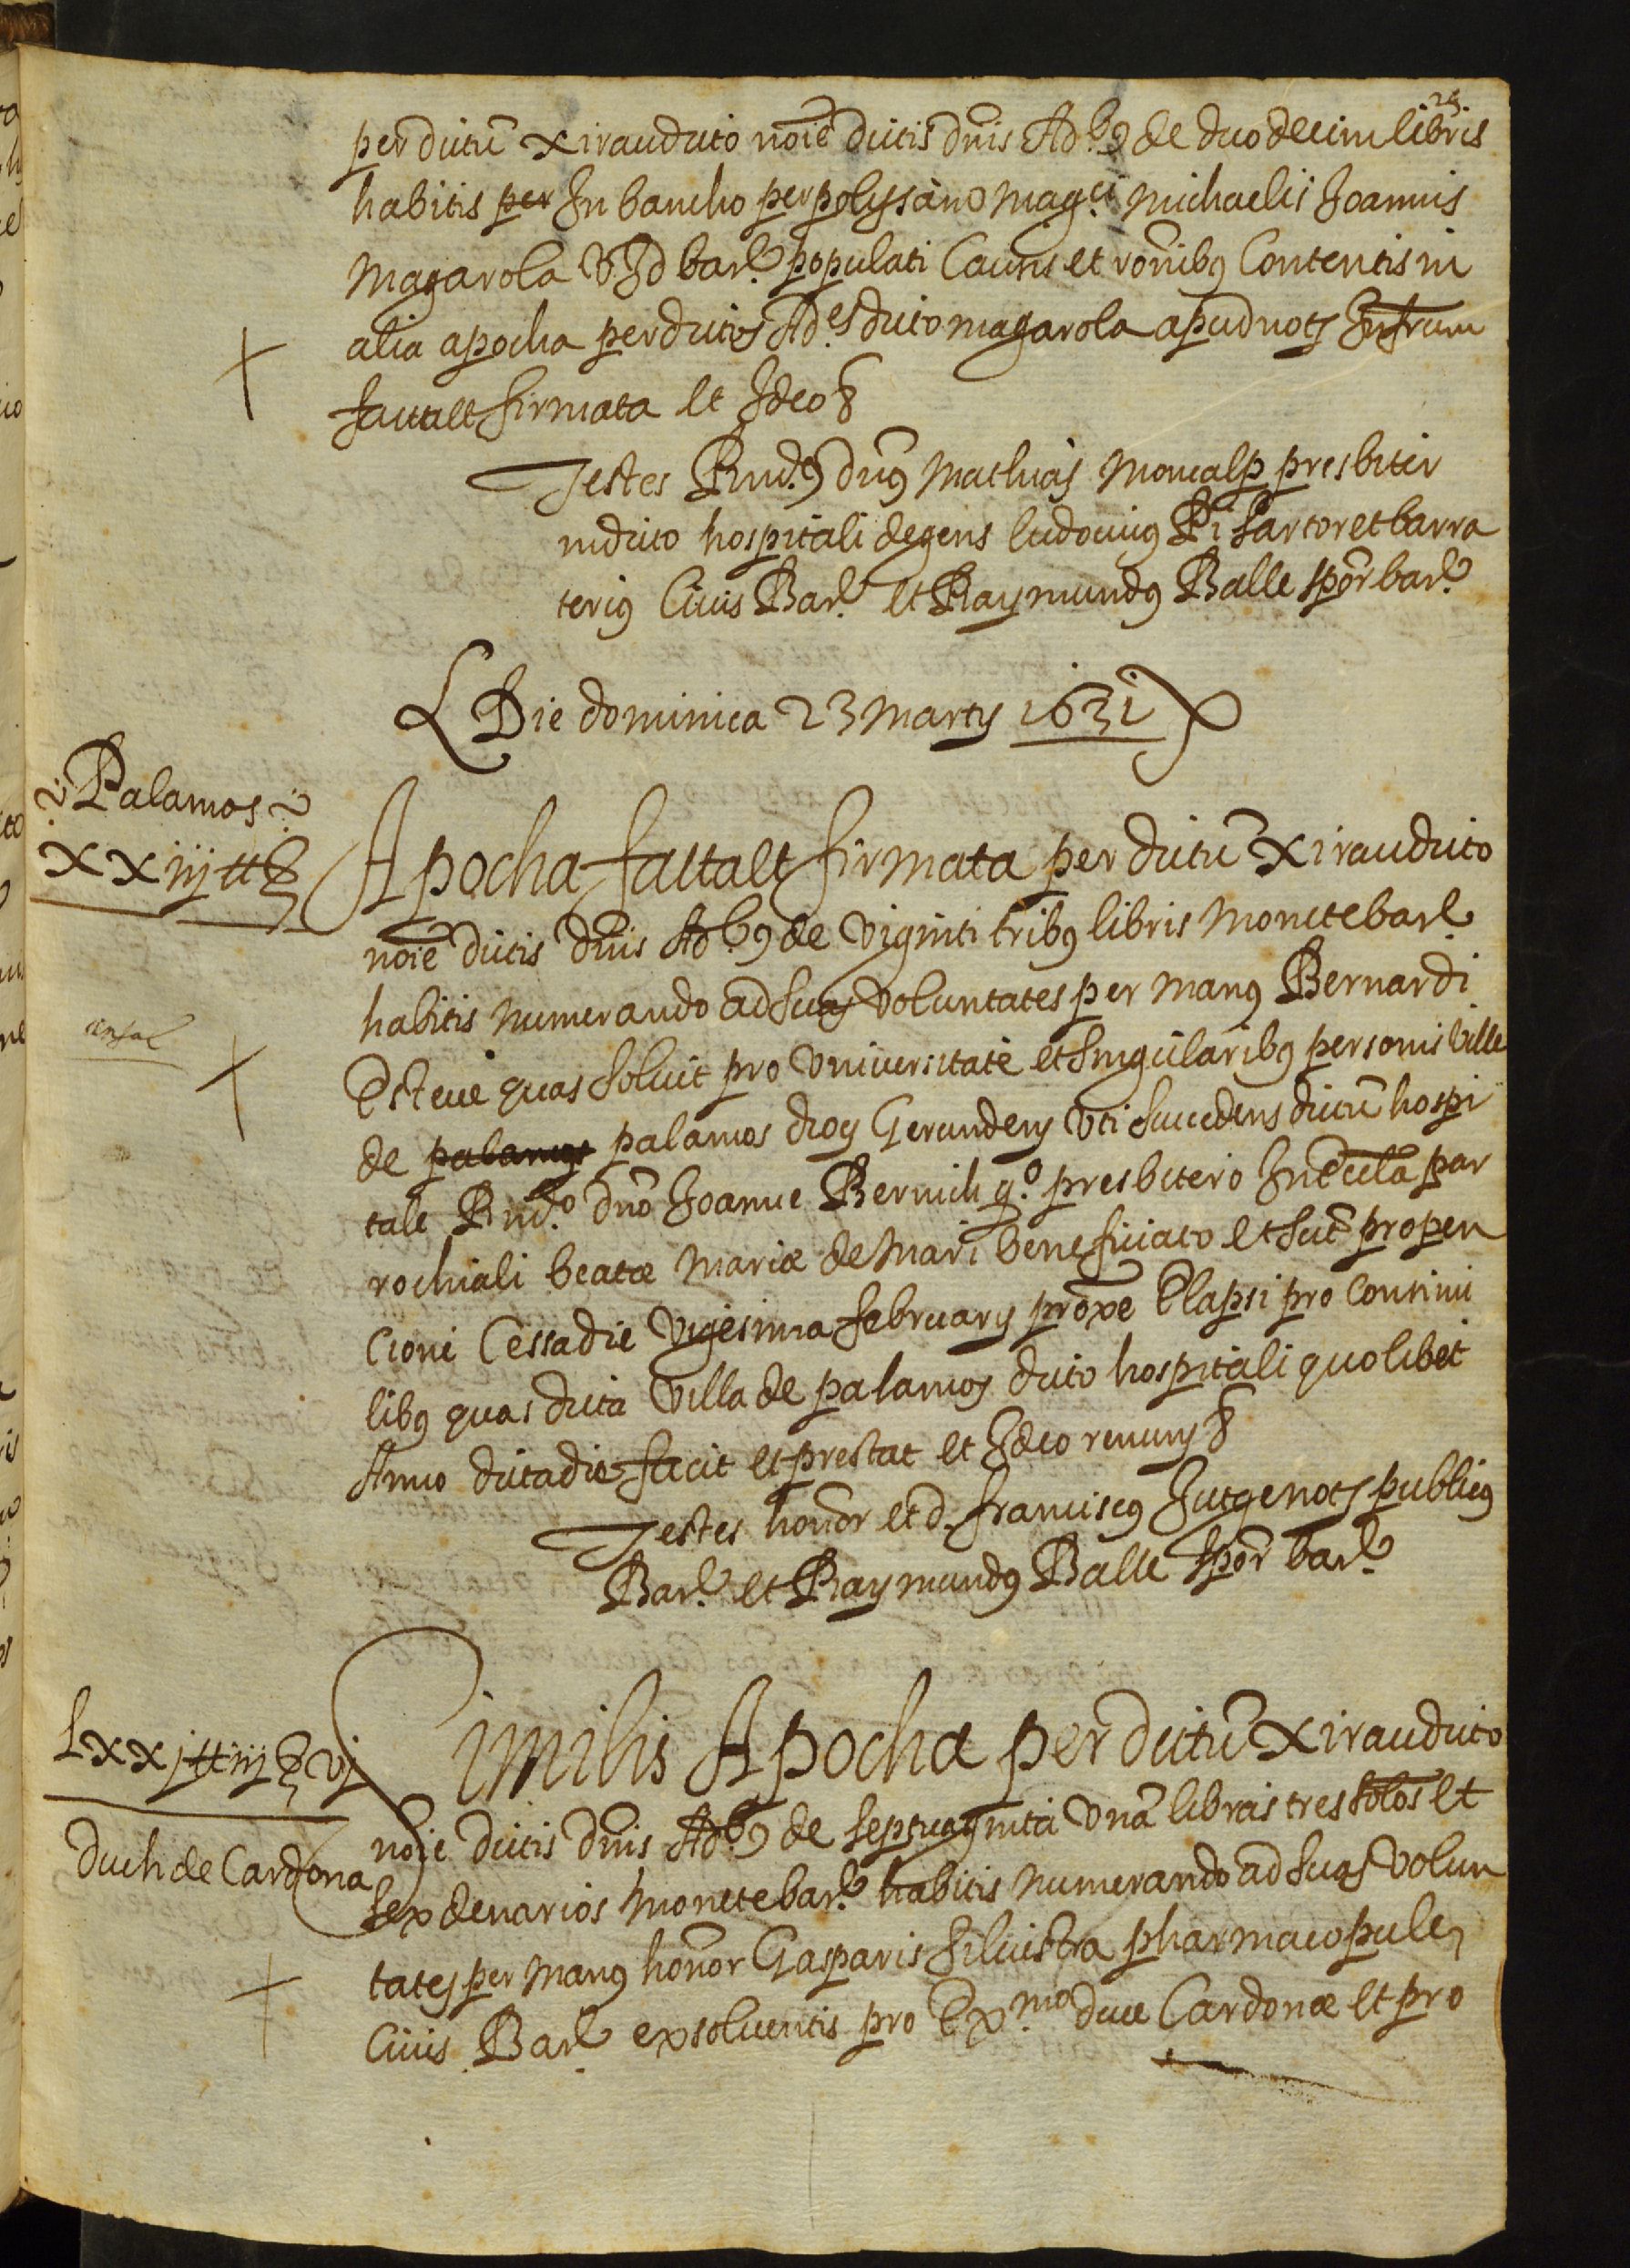 24.
per dictũ Xirau dicto noie dictis dnis Adb9 de duodecim libris
habitis per In bancho per polysã mag.ci Michaelis Joannis
Magarola V J D bar.e populati Causis et ronibus Contentis in
alia apocha per dictos Ad.es dicto magarola apud nots Infrum
facta et firmata et Ideo &
Testes Rnd.9 dn9 Mathias Moncalp presbiter
in dicto hospitali degens ludovicus Pi sartor et barra
terius Civis Bar.e et Raymundus Balle spõr bar.e
Die dominica 23 Martij 1631
Palamos
XXiij tt ß
Apocha facta et firmata per dictũ Xirau dicto
noie dictis dnis Adb9 de viginti tribus libris Monete bar.e
habitis numerando ad suas voluntates per manus Bernardi
Esteve quas solvit pro universitate et singularibus personis ville
de palamos palamos diocs Gerundens Uti succedens dictũ hospi
tale Rnd.o dno Joanne Bernich q.o presbitero In eccla par
rochiali beatæ Mariæ de Mari beneficiato et sũt pro pen
cione Cessa die vigesima februarij proxe Elapsi pro consimi
libus quas dicta Villa de palamos dicto hospitali quolibet
Anno dicta die facit et prestat et Ideo renuns &
Testes honor et d. franciscus Jutge nots publicus
Bar.e et Raymundus Balle spõr bar.e
Lxxj tt iij ß vj
Duch de Cardona
Similis Apocha per dictũ Xirau dicto
noie dictis dnis Adb9 de septuaginta unã libras tres solos et
sex denarios monete bar.e habitis numerando ad suas volun
tates per manus honor Gasparis Silvistra pharmacopule
Civis Bar.e exsolventis pro Ex.mo duce Cardonæ et pro